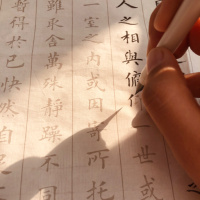 人之相與俯仰一世或
一室之内或因寄所托
雖取舍萬殊靜躁不同
暫得於己快然自足